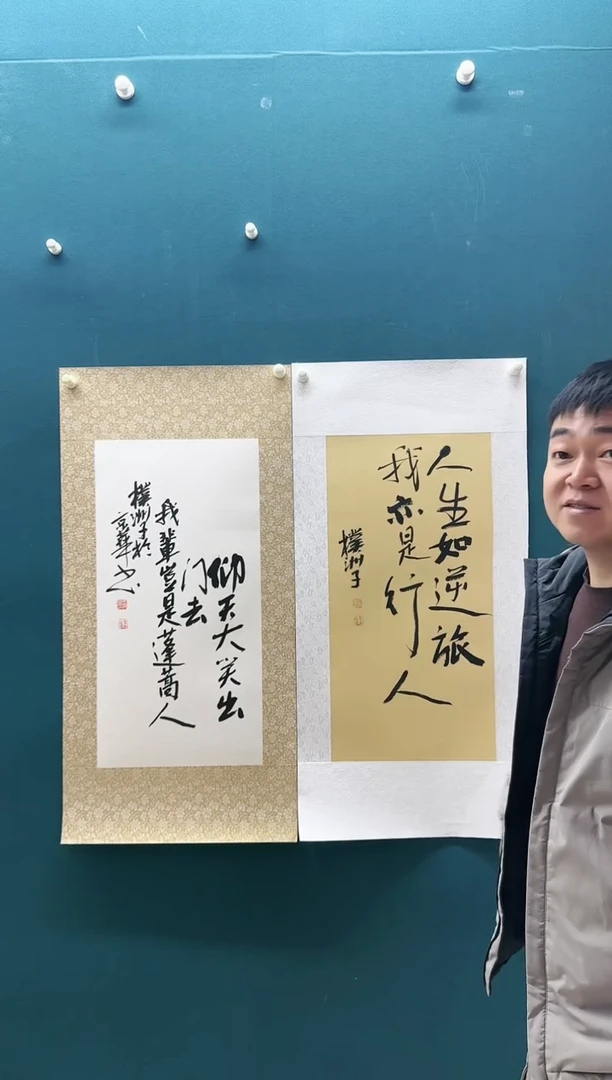 仰天大笑出
门去
我輩豈是蓬蒿人
樸洲子於
京華书
人生如逆旅
我亦是行人
樸洲子